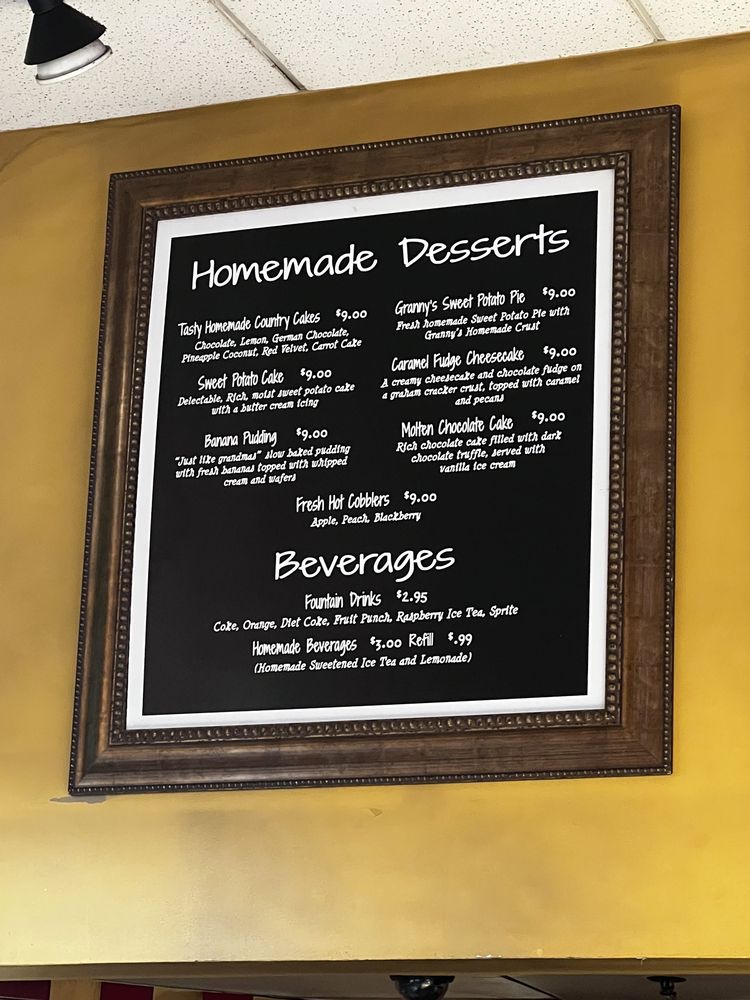 Homemade Desserts
Tasty Homemade Country Cakes $9.00
Chocolate, Lemon, German Chocolate,
Pineapple Coconut, Red Velvet, Carrot Cake
Sweet Potato Cake $9.00
Delectable, Rich, moist sweet potato cake
with a butter cream icing
Banana Pudding $9.00
"Just like grandmas" slow baked pudding
with fresh bananas topped with whipped
cream and wafers
Granny's Sweet Potato Pie $9.00
Fresh homemade Sweet Potato Pie with
Granny's Homemade Crust
Caramel Fudge Cheesecake $9.00
A creamy cheesecake and chocolate fudge on
a graham cracker crust, topped with caramel
and pecans
Molten Chocolate Cake $9.00
Rich chocolate cake filled with dark
chocolate truffle, served with
vanilla ice cream
Fresh Hot Cobblers $9.00
Apple, Peach, Blackberry
Beverages
Fountain Drinks $2.95
Coke, Orange, Diet Coke, Fruit Punch, Raspberry Ice Tea, Sprite
Homemade Beverages $3.00 Refill $.99
(Homemade Sweetened Ice Tea and Lemonade)